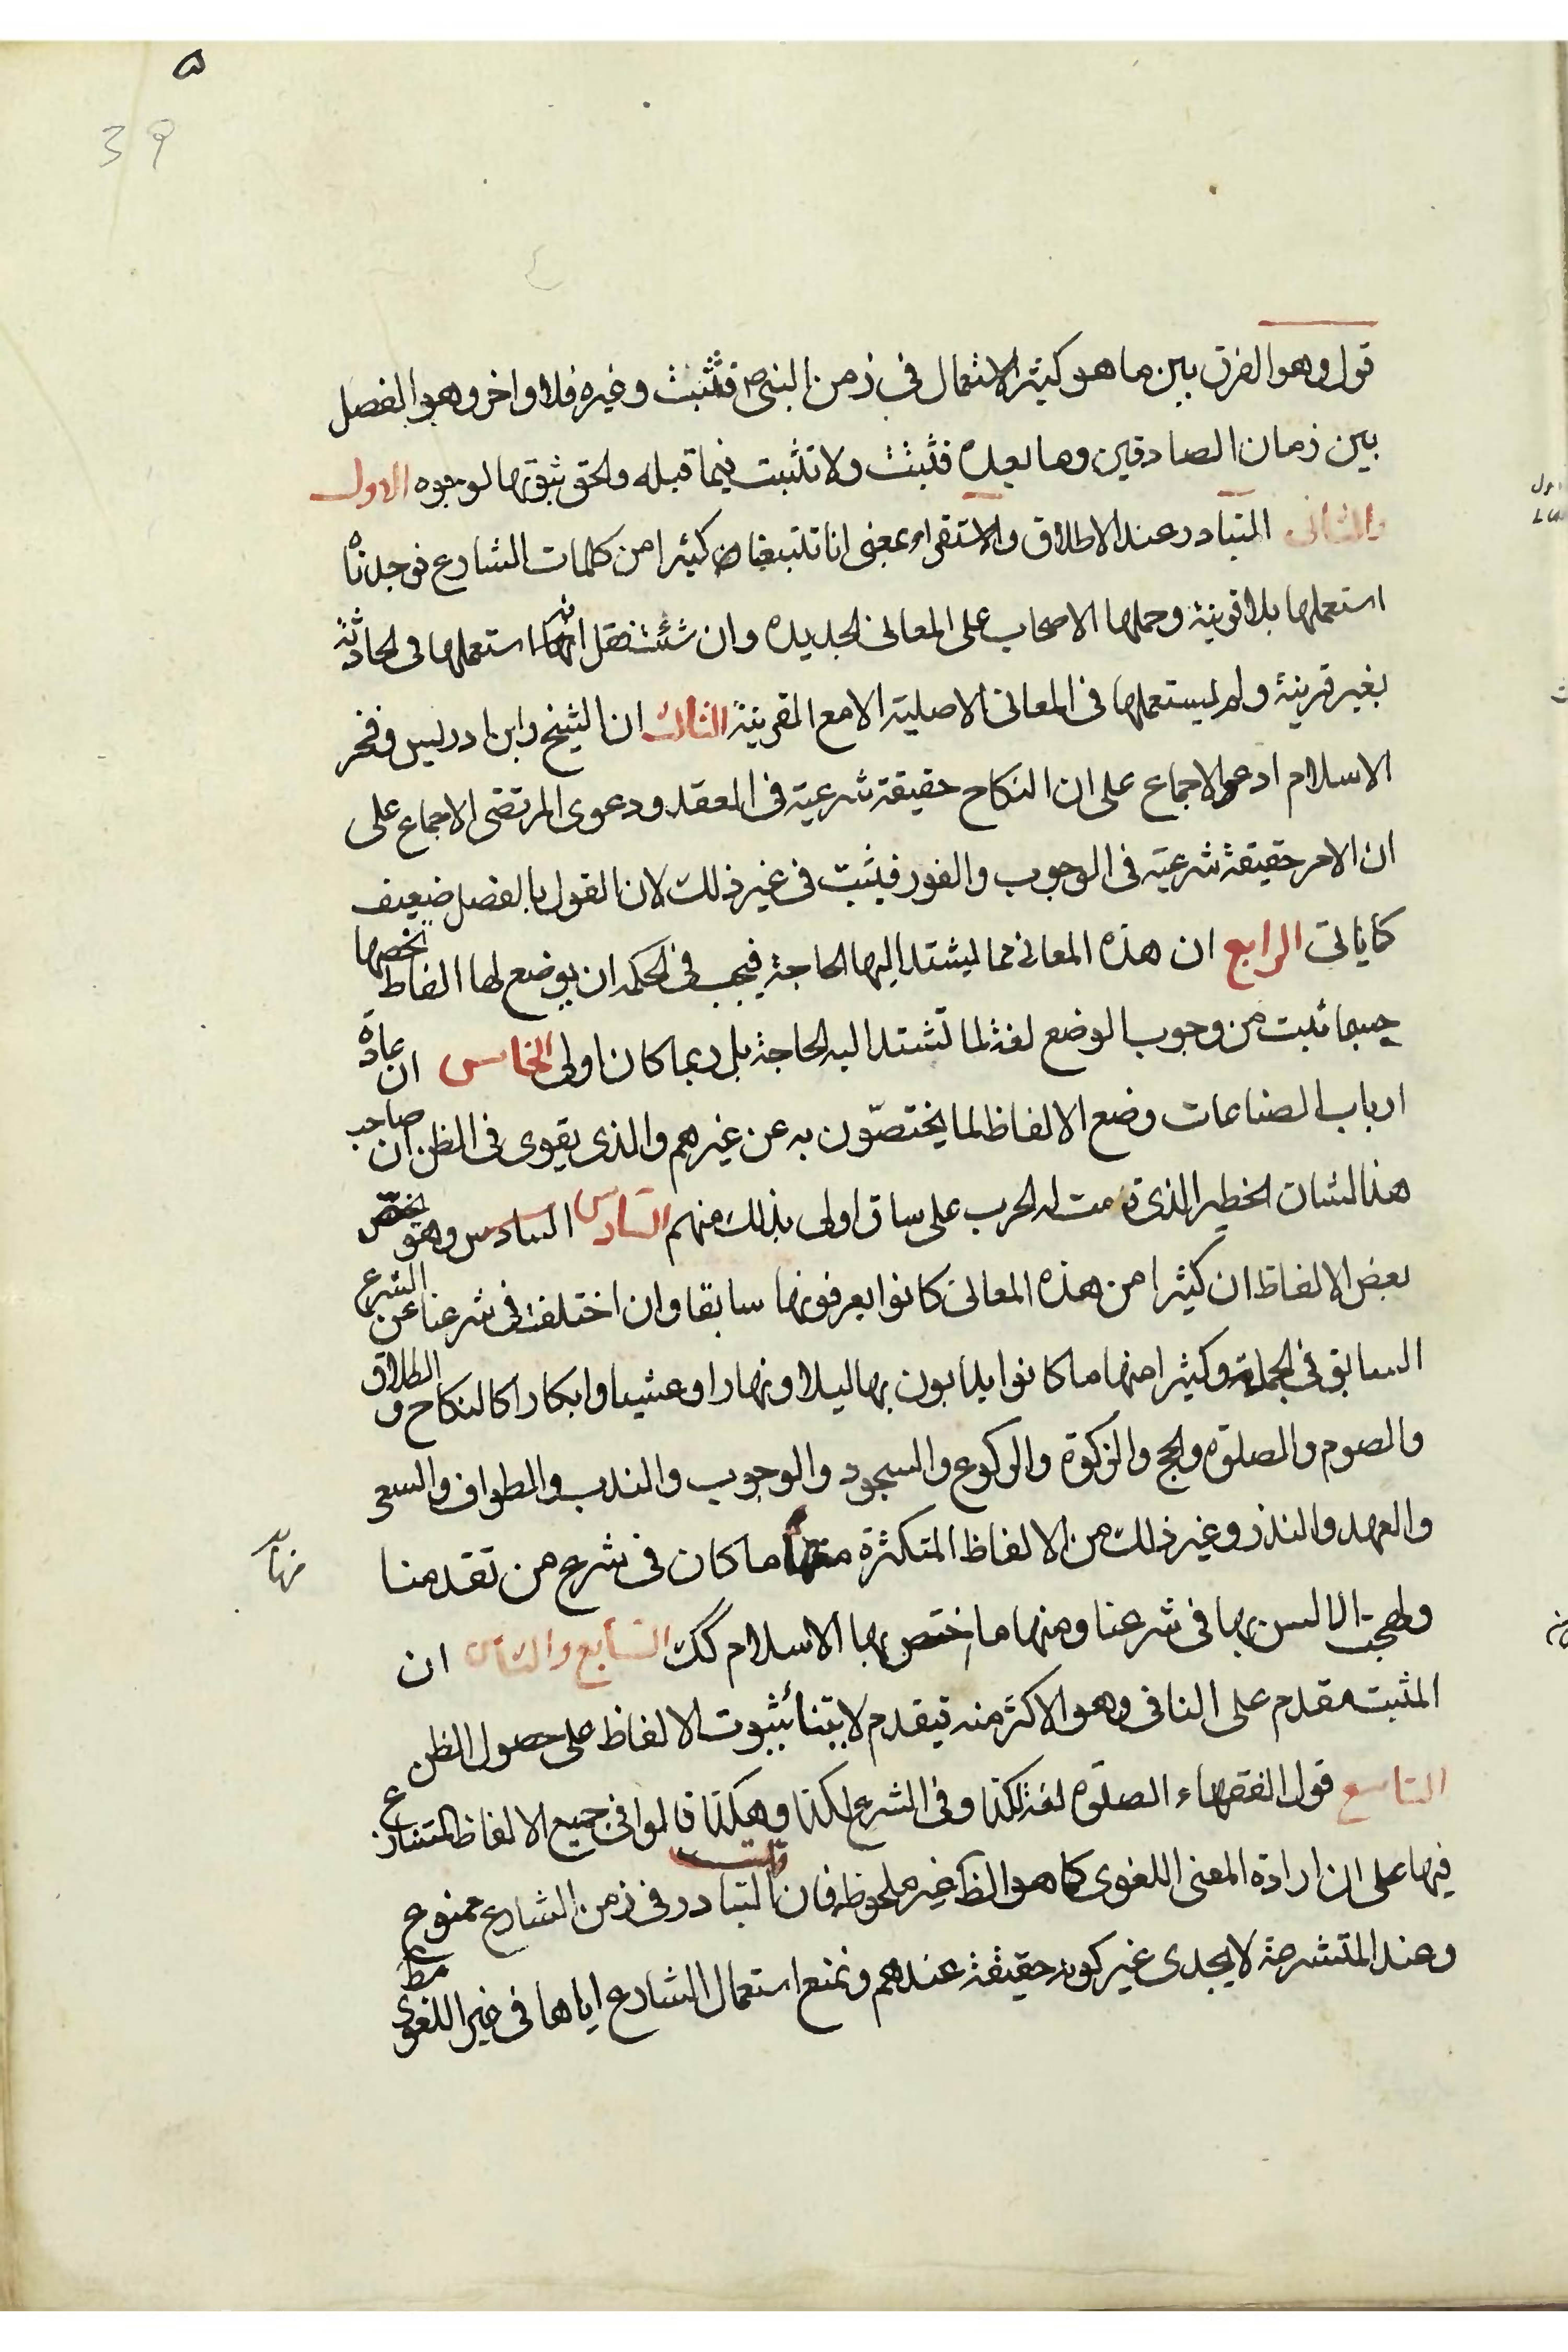 ٥
39
قول وهو الفرق بين ما هو كثير الاستعمال في زمن النبي ص فتثبت وغيره فلا واخر وهو الفصل
بين زمان الصادقين وما بعده فتثبت ولا تثبت فيما قبله والحق ثبوتها لوجوه الاول
والثاني المتبادر عند الاطلاق والاستقراء بمعنى انا تتبعنا كثيرا من كلمات الشارع فوجدناه
استعملها بلا قرينة وحملها الاصحاب على المعاني الجديده وان شئت فقل انه استعملها في الحادثة
بغير قرينة ولم يستعملها في المعاني الاصلية الا مع القرينة الثالث ان الشيخ وابن ادريس وفخر
الاسلام ادعوا الاجماع على ان النكاح حقيقة شرعية في العقد ودعوى المرتضى الاجماع على
ان الامر حقيقة شرعية في الوجوب والفور فيثبت في غير ذلك لان القول بالفصل ضعيف
كما ياتي الرابع ان هذه المعاني مما يشتد اليها الحاجة فيجب في الحكمه ان يوضع لها الفاظ تخصها
حسبما ثبت من وجوب الوضع لغة لما تشتد اليه الحاجة بل ربما كان اولى الخامس ان عادة
ارباب الصناعات وضع الالفاظ لما يختصّون به عن غيرهم والذي يقوى في الظن ان صاحب
هذا الشان الخطير الذي قامت له الحرب على ساق اولى بذلك منهم السادس السادس وهو يختص
بعض الالفاظ ان كثيرا من هذه المعاني كانوا يعرفونها سابقا وان اختلفت في شرعنا عن الشرع
السابق في الجملة وكثيرا منها ما كانوا يدابون بها ليلا ونهارا وعشيا وابكارا كالنكاح و الطلاق
والصوم والصلوة والحج والزكوة والركوع والسجود والوجوب والندب والطواف والسعي
والعهد والنذر وغير ذلك من الالفاظ المتكثرة منها ما كان في شرع من تقدمنا
منها
ولهجت الالسن بها في شرعنا ومنها ما اختص بها الاسلام كك السابع والثامن ان
المثبت مقدم على النافي وهو الاكثر منه فيقدم لابتناء ثبوت الالفاظ على حصول الظن
التاسع قول الفقهاء الصلوة لغة لكذا وفي الشرع لكذا وهكذا قالوا في جميع الالفاظ المتنازع
فيها على ان ارادة المعنى اللغوي كما هو الظ غير ملحوظ قلت فان التبادر في زمن الشارع ممنوع
وعند المتشرعة لا يجدي غير كونه حقيقة عندهم ونمنع استعمال الشارع اياها في غير اللغوي مط